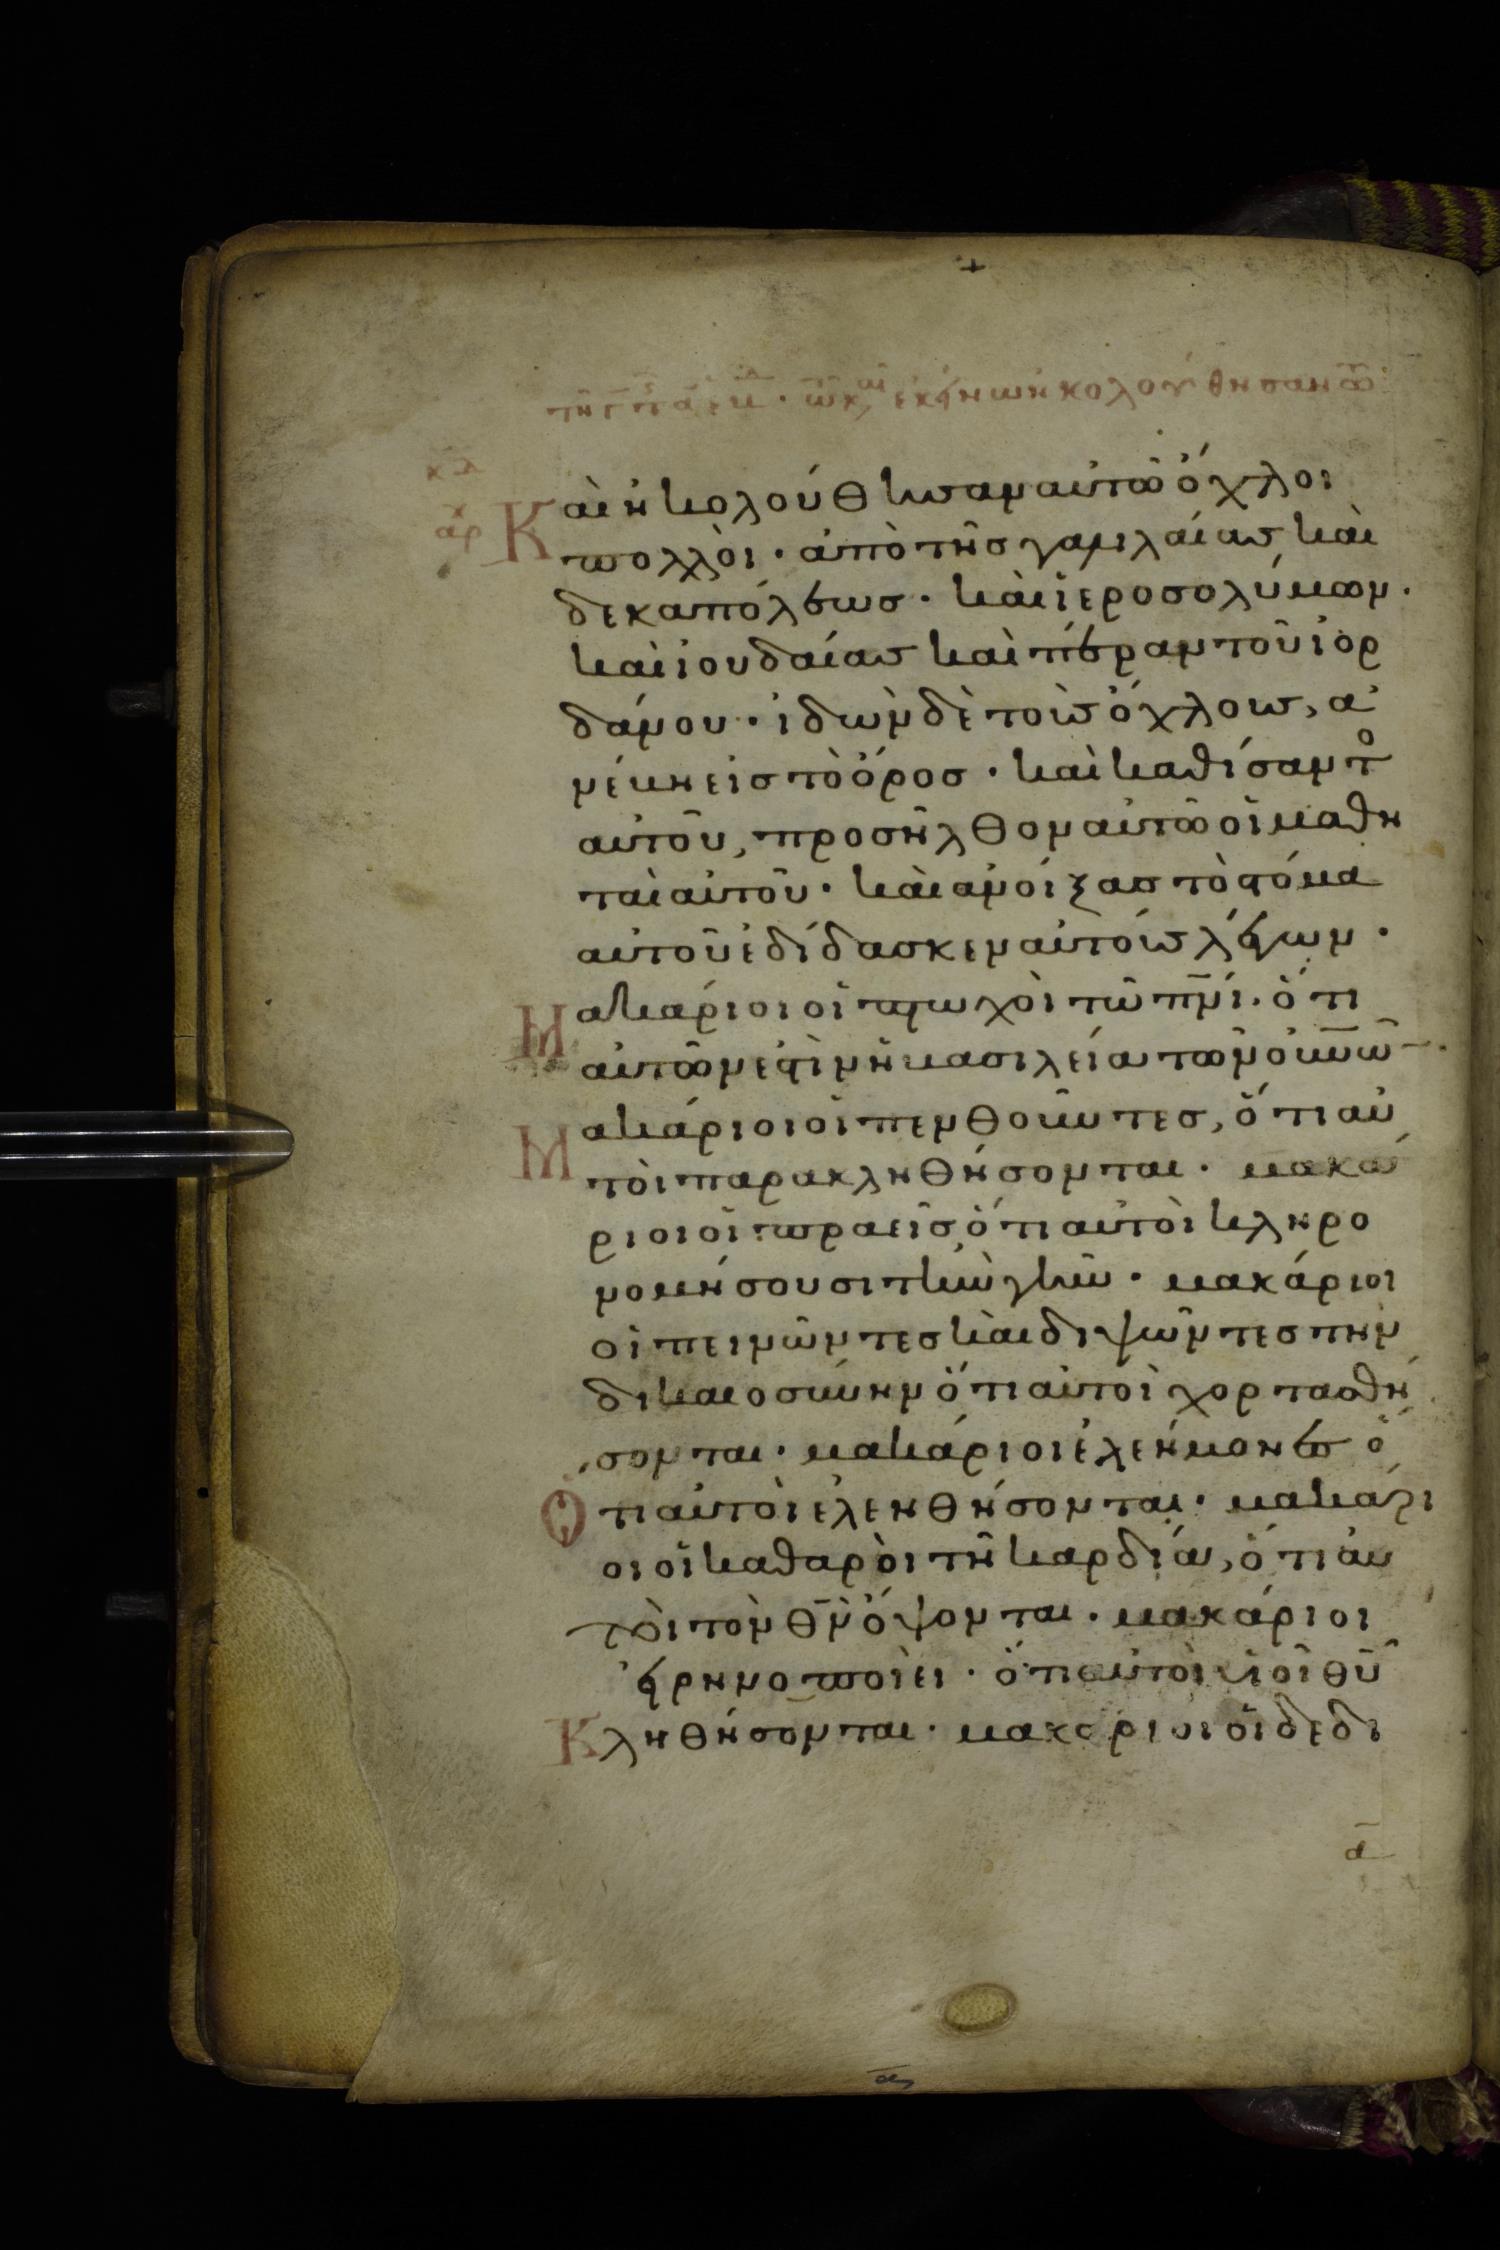 Καὶ ἠκολούθησαν αὐτῶ ὄχλοι
πολλοὶ · ἀπὸ τῆσ γαλιλαίασ καὶ
δεκαπόλεωσ · καὶ ἱεροσολύμων ·
καὶ ἰουδαίασ καὶ πέραν τοῦ ἰορ
δάνου · ἰδὼν δὲ τοὺσ ὄχλουσ, ἀ
νέβη εἰσ τὸ ὄροσ · καὶ καθίσαντο
αὐτοῦ, προσῆλθον αὐτῶ οἱ μαθη
ταὶ αὐτοῦ · καὶ ἀνοίξασ τὸ στόμα
αὐτοῦ ἐδίδασκεν αὐτούσ λέγων ·
Μακάριοι οἱ πτωχοὶ τῶ πνί · ὅτι
αὐτῶν ἐστὶν ἡ βασιλεία τῶν οὐνῶ ·
Μακάριοι οἱ πενθοῦντεσ, ὅτι αὐ
τοὶ παρακληθήσονται · μακά
ριοι οἱ πραεῖσ ὅτι αὐτοὶ κληρο
νομήσουσι τὴν γῆν · μακάριοι
οἱ πεινῶντεσ καὶ διψῶντεσ τὴν
δικαιοσύνην ὅτι αὐτοὶ χορτασθή
σονται · μακάριοι ἐλεήμονεσ ὅ
Οτι αὐτοὶ ἐλεηθήσονται · μακάρι
οι οἱ καθαροὶ τῆ καρδία, ὅτι αὐ
τοὶ τὸν θν ὄψονται · μακάριοι
ἐρηνοποιει · ὅτι αὐτοὶ υἱοὶ θῦ
Κληθήσονται · μακάριοι οἱ δεδι
α